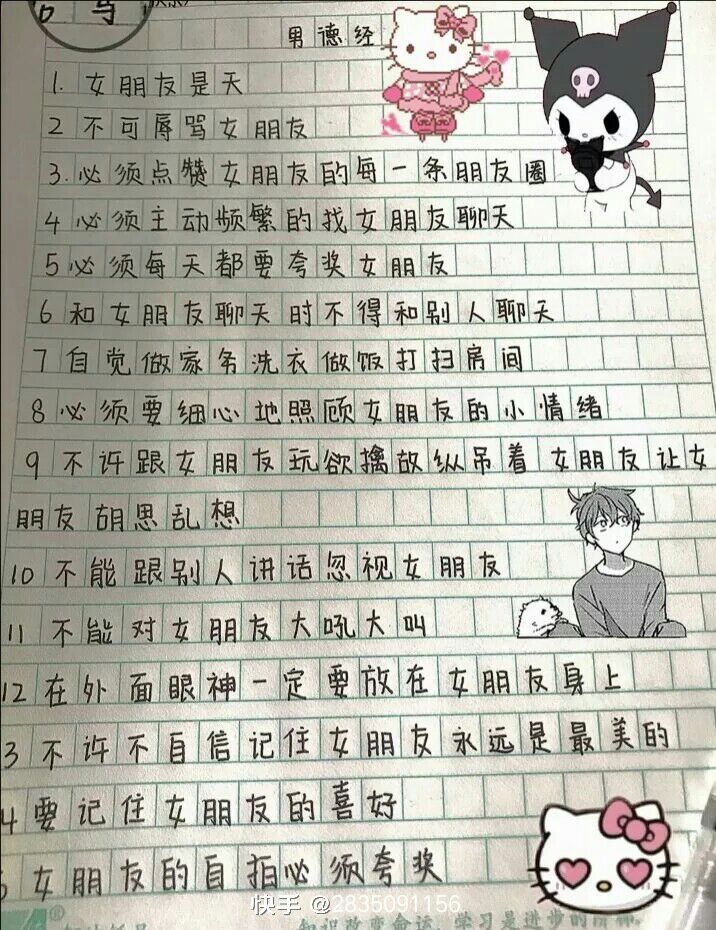 男德经
1. 女朋友是天
2 不可辱骂女朋友
3. 必须点赞女朋友的每一条朋友圈
4 必须主动频繁的找女朋友聊天
5 必须每天都要夸奖女朋友
6 和女朋友聊天时不得和别人聊天
7 自觉做家务洗衣做饭打扫房间
8 必须要细心地照顾女朋友的小情绪
9 不许跟女朋友玩欲擒故纵吊着女朋友让女
朋友胡思乱想
10 不能跟别人讲话忽视女朋友
11 不能对女朋友大吼大叫
12 在外面眼神一定要放在女朋友身上
3 不许不自信记住女朋友永远是最美的
4 要记住女朋友的喜好
女朋友的自拍必须夸奖
快手 @2835091156
知识改变命运，学习是进步的